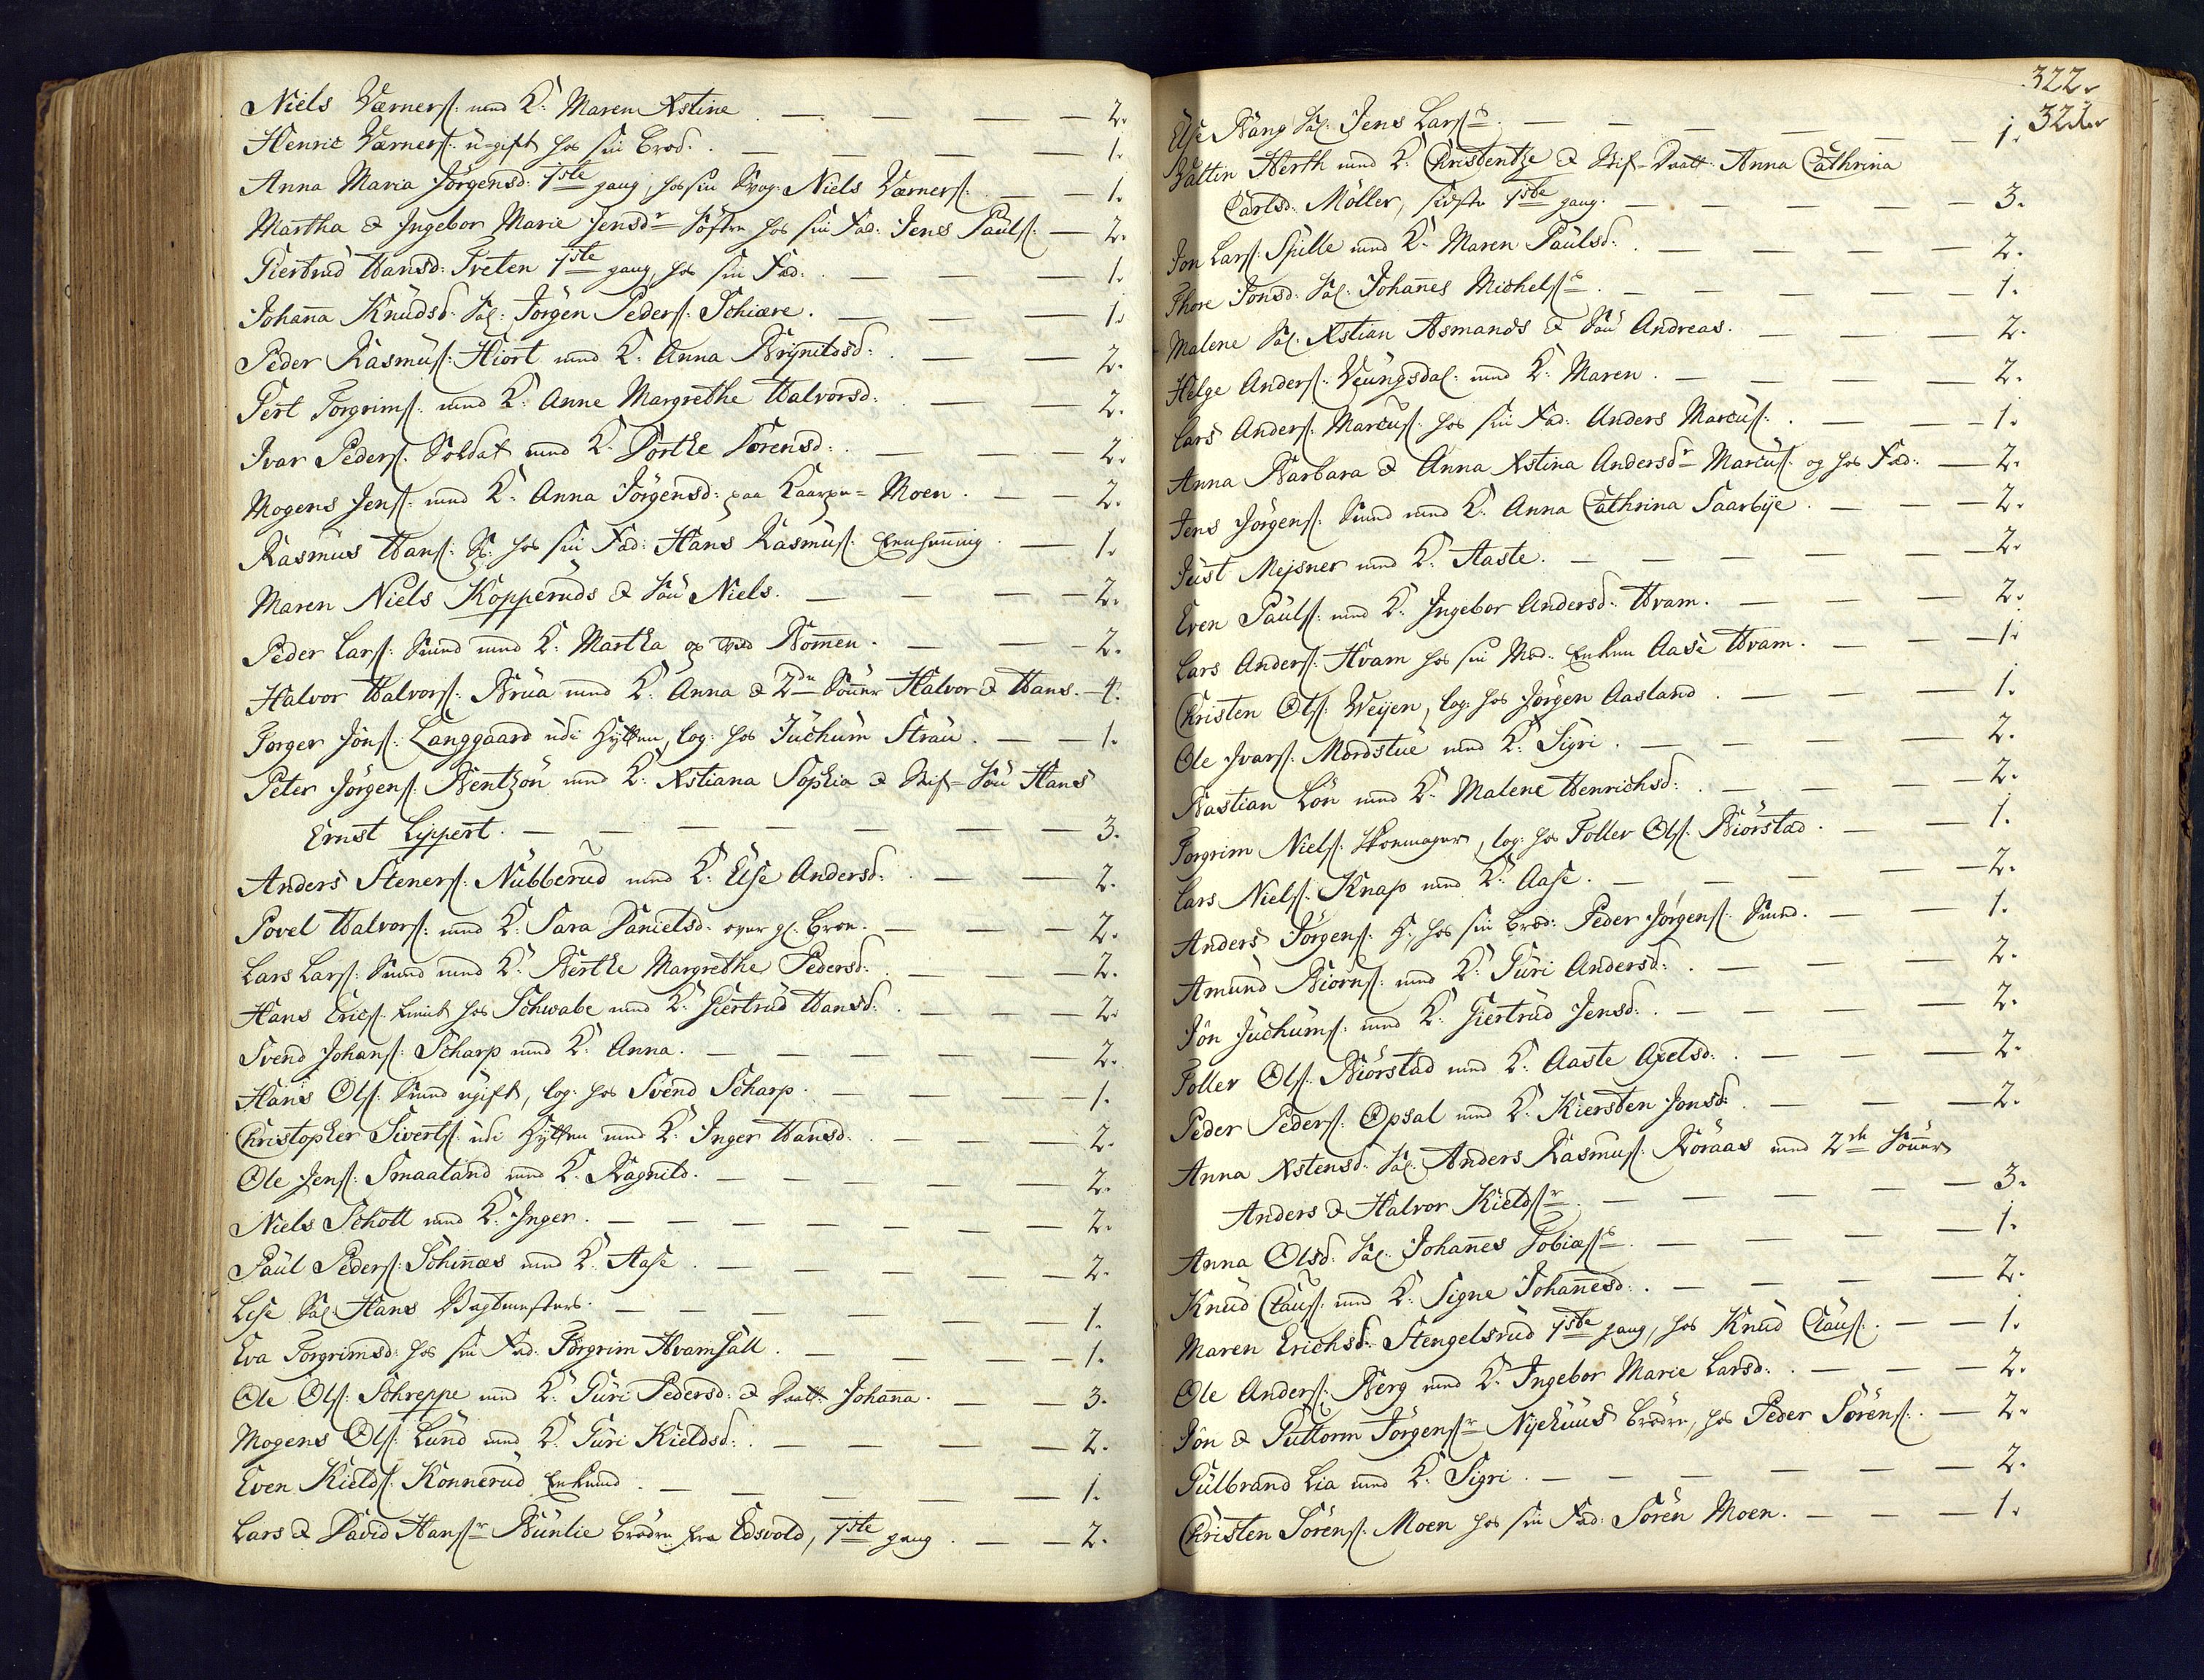 Niels Værners: med K: Maren Xstine — 2.
Henric Værners: ugift hos sin Brod: — 1.
Anna Maria Jörgensd: 1ste gang, hos sin Svog: Niels Værners: — 1.
Martha & Ingebor Marie Jensdr Söstre hos sin Fad: Jens Pauls: — 2.
Giertrud Hansd: Tveten 1ste gang, hos sin Fad: — 1.
Johana Knudsd: Sal: Jörgen Peders: Schiære. — 1.
Peder Rasmus: Hiort med K: Anna Brynildsd: — 2.
Gert Torgrims: med K: Anne Margrethe Halvorsd: — 2.
Ivar Peders: Soldat med K: Dorthe Sörensd: — 2.
Mogens Jens: med K: Anna Jörgensd: paa Moen. — 2.
Rasmus Hans: hos sin Fad: Hans Rasmus: — 1.
Maren Niels Kopperuds & Sön Niels. — 2.
Peder Lars: Smed med K: Martha op ved Bomen. — 2.
Halvor Halvors: Brua med K: Anna & 2de Söner Halvor & Hans. — 4.
Torger Jöns: Langgaard udi Hytten, log: hos Juchum Strau. — 1.
Peter Jörgens: Bentzön med K: Xstiana Sophia & Stif-Sön Hans
Ernst Lippert. — 3.
Anders Steners: Nubberud med K: Else Andersd: — 2.
Povel Halvors: med K: Sara Danielsd: over gl: Broe. — 2.
Lars Lars: Smed med K: Berthe Margrethe Pedersd: — 2.
Hans Erics: hos Schwabe med K: Giertrud Hansd: — 2.
Svend Johans: Scharp med K: Anna. — 2.
Hans Ols: Smed ugift, log: hos Svend Scharp. — 1.
Christopher Siverts: udi Hytten med K: Inger Hansd: — 2.
Ole Jens: Smaaland med K: Ragnild. — 2.
Niels Schott med K: Inger. — 2.
Paul Peders: Schinæs med K: Aase — 2.
Lise Sal: Hans Vagtmesters. — 1.
Eva Torgrimsd: hos sin Fad: Torgrim Hvamsall. — 1.
Ole Ols: Schreppe med K: Guri Pedersd: & Datt: Johana. — 3.
Mogens Ols: Lund med K: Guri Kieldsd: — 2.
Even Kields: Konnerud Enkemd. — 1.
Lars & David Hansr Bunlie Brödre fra Edsvold, 1ste gang. — 2.
322.
321.
Else Bang Sal: Jens Larss. — 1.
Valtin Herth med K: Christentze & Stif-Datt: Anna Cathrina
Carlsd: Möller, sidste 1ste gang. — 3.
Jon Lars: Spille med K: Maren Paulsd: — 2.
Thore Jonsd: Sal: Johanes Michelss. — 1.
Malene Sal: Xstian Asmands & Sön Andreas. — 2.
Helge Anders: Veungsdal: med K: Maren. — 2.
Lars Anders: Marcus: hos sin Fad: Anders Marcus: — 1.
Anna Barbara & Anna Xstina Andersdr Marcus: og hos Fad: — 2.
Jens Jörgens: Smed med K: Anna Cathrina Saarbye. — 2.
Just Mejsner med K: Aaste. — 2.
Even Pauls: med K: Ingebor Andersd: Hvam. — 2.
Lars Anders: Hvam hos sin Mod: Enken Aase Hvam. — 1.
Christen Ols: Weyen, log: hos Jörgen Aasland. — 1.
Ole Ivars: Mordstue med K: Sigri. — 2.
Bastian Lön med K: Malene Henrichsd: — 2.
Torgrim Niels: Skoemager, log: hos Toller Ols: Biörstad. — 1.
Lars Niels: Knap med K: Aase. — 2.
Anders Jörgens: hos sin Brod: Peder Jörgens: Smed. — 1.
Amund Biörns: med K: Guri Andersd: — 2.
Jön Juchums: med K: Giertrud Jensd: — 2.
Toller Ols: Biörstad med K: Aaste Axelsd: — 2.
Peder Peders: Opsal med K: Kiersten Jonsd: — 2.
Anna Xstensd: Sal: Anders Rasmus: Röraas med 2de Söner
Anders & Halvor Kieldsr. — 3.
Anna Olsd: Sal: Johanes Tobiæss. — 1.
Knud Claus: med K: Signe Johanesd: — 2.
Maren Erichsd: Stengelsrud 1ste gang, hos Knud Claus: — 1.
Ole Anders: Berg med K: Ingebor Marie Larsd: — 2.
Jön & Guttorm Jörgensr Nyehuus Brödre, hos Peder Sörens: — 2.
Gulbrand Lia med K: Sigri. — 2.
Christen Sörens: Moen hos sin Fad: Sören Moen. — 1.